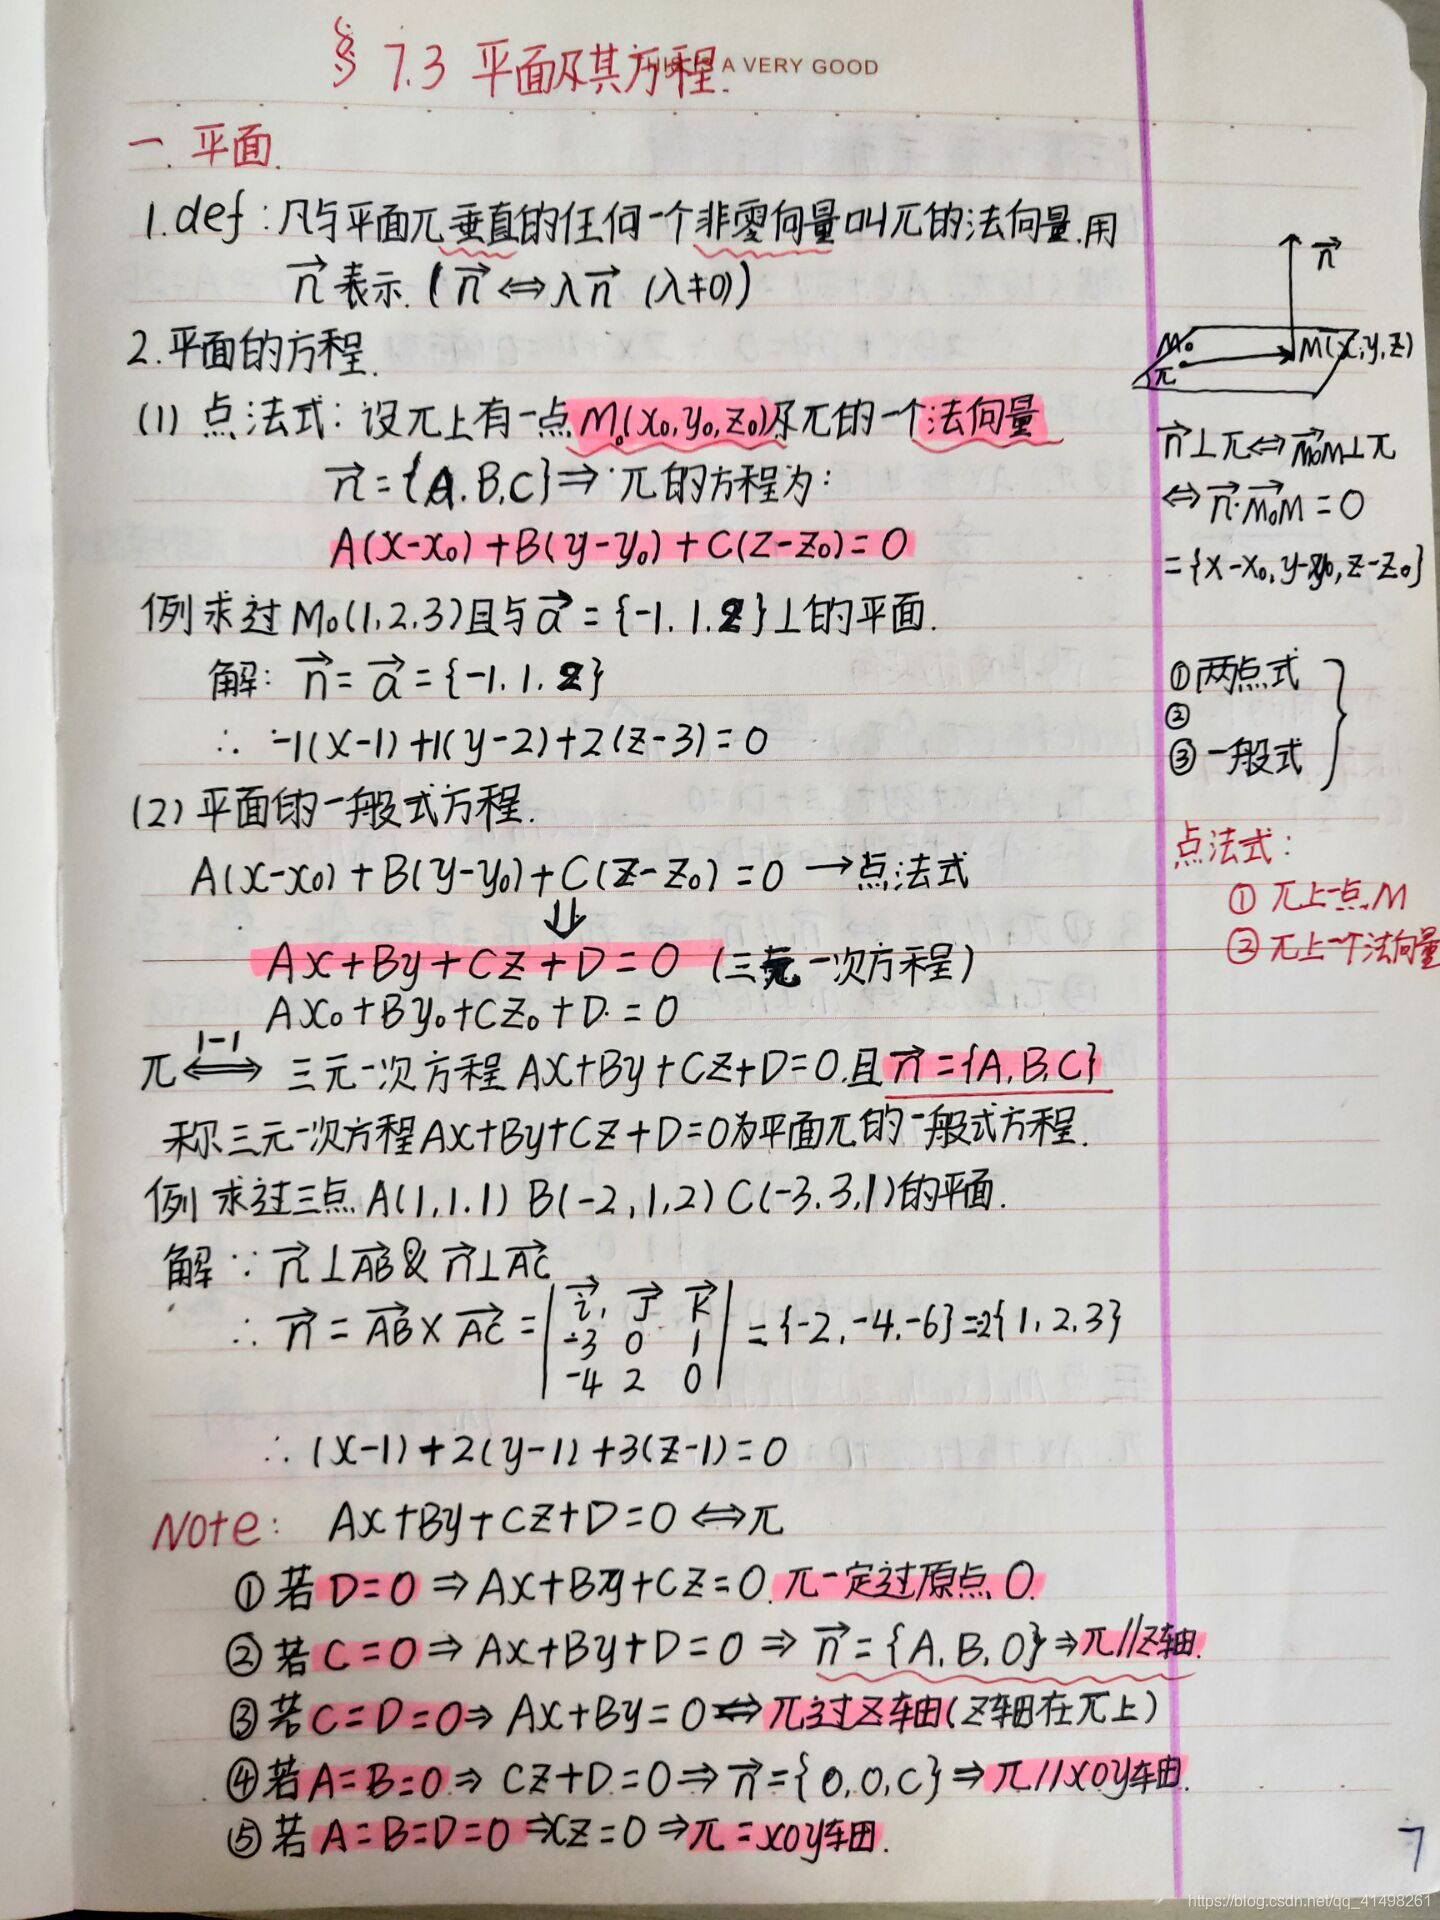 § 7.3 平面及其方程.
THIS IS A VERY GOOD
一. 平面.
1. def: 凡与平面π垂直的任何一个非零向量叫π的法向量.用
n⃗ 表示. (n⃗ ⇔ λn⃗ (λ≠0))
2. 平面的方程.
(1) 点法式: 设π上有一点M₀(x₀,y₀,z₀)及π的一个法向量
n⃗={A,B,C}⇒π的方程为:
A(x-x₀)+B(y-y₀)+C(z-z₀)=0
例 求过M₀(1,2,3)且与a⃗={-1.1.2}⊥的平面.
解: n⃗=a⃗={-1.1.2}
∴ -1(x-1)+1(y-2)+2(z-3)=0
(2) 平面的一般式方程.
A(x-x₀)+B(y-y₀)+C(z-z₀)=0 →点法式
⇓
Ax+By+Cz+D=0 (三元一次方程)
Ax₀+By₀+Cz₀+D=0
1-1
π⇔ 三元一次方程Ax+By+Cz+D=0.且n⃗={A,B,C}
称三元一次方程Ax+By+Cz+D=0为平面π的一般式方程.
例 求过三点A(1,1,1) B(-2,1,2) C(-3,3,1)的平面.
解 ∵ n⃗⊥AB⃗ & n⃗⊥AC⃗
∴ n⃗=AB⃗×AC⃗=| i⃗, j⃗ k⃗ |={-2,-4,-6}=2{1,2,3}
-3 0 1
-4 2 0
∴ (x-1)+2(y-1)+3(z-1)=0
Note: Ax+By+Cz+D=0⇔π
①若D=0⇒Ax+By+Cz=0.π一定过原点O.
②若C=0⇒Ax+By+D=0⇒n⃗={A,B,0}⇒π//z轴.
③若C=D=0⇒Ax+By=0⇔π过z轴(z轴在π上)
④若A=B=0⇒Cz+D=0⇒n⃗={0,0,C}⇒π//xoy轴.
⑤若A=B=D=0⇒Cz=0⇒π=xoy轴.
n⃗
M₀
M(x,y,z)
π
n⃗⊥π⇔M₀M⃗⊥π
⇔n⃗·M₀M⃗=0
={x-x₀,y-y₀,z-z₀}
①两点式
②
③一般式
点法式:
① π上一点M
② π上一个法向量
7
https://blog.csdn.net/qq_41498261